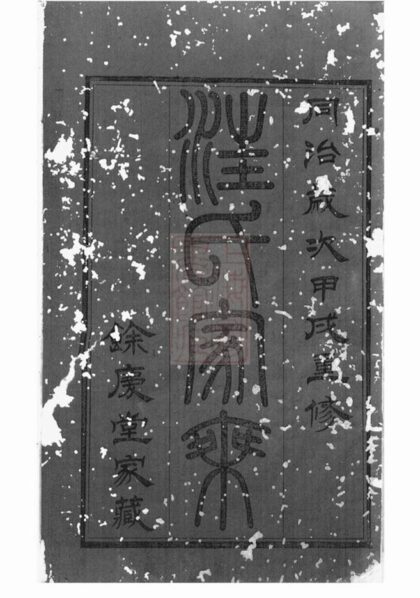 同治歲次甲戌重修
汪氏家乘
餘慶堂家藏